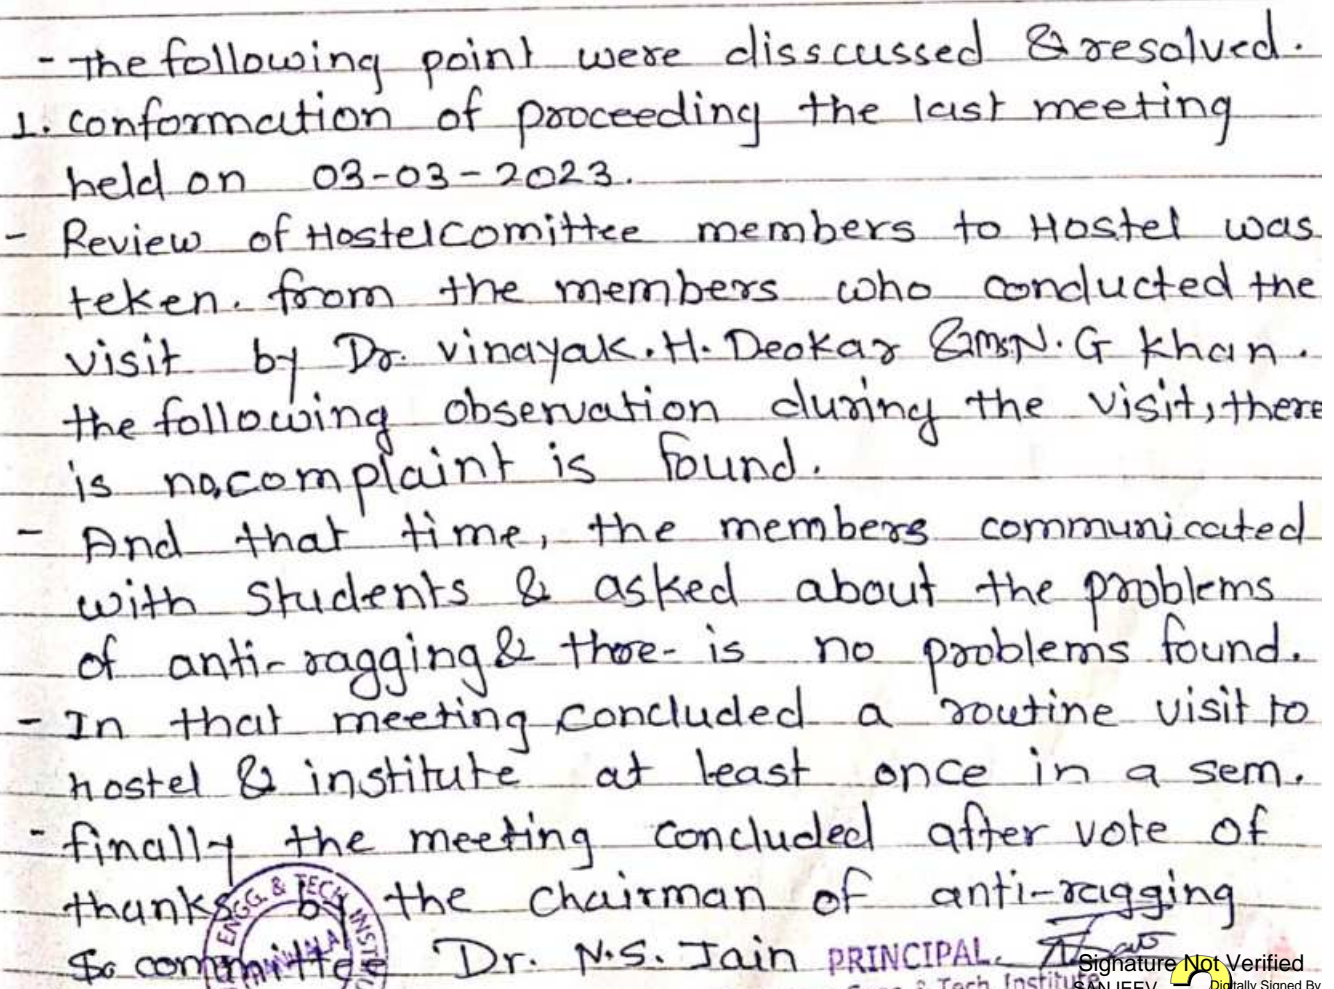 - The following point were disscussed & resolved.
1. conformation of proceeding the last meeting
held on 03-03-2023.
- Review of Hostel Comittee members to Hostel was
teken. from the members who conducted the
visit by Dr. Vinayak. H. Deokar & Ms N. G Khan.
the following observation during the visit, there
is no complaint is found.
- And that time, the members communicated
with Students & asked about the problems
of anti-ragging & there is no problems found.
- In that meeting concluded a routine visit to
hostel & institute at least once in a sem.
- finally the meeting concluded after vote of
thanks by the chairman of anti-ragging
committee Dr. N.S. Jain
ENGG. & TECH INSTITU
PRINCIPAL
& Tech Institute
Signature Not Verified
SANJEEV
Digitally Signed By